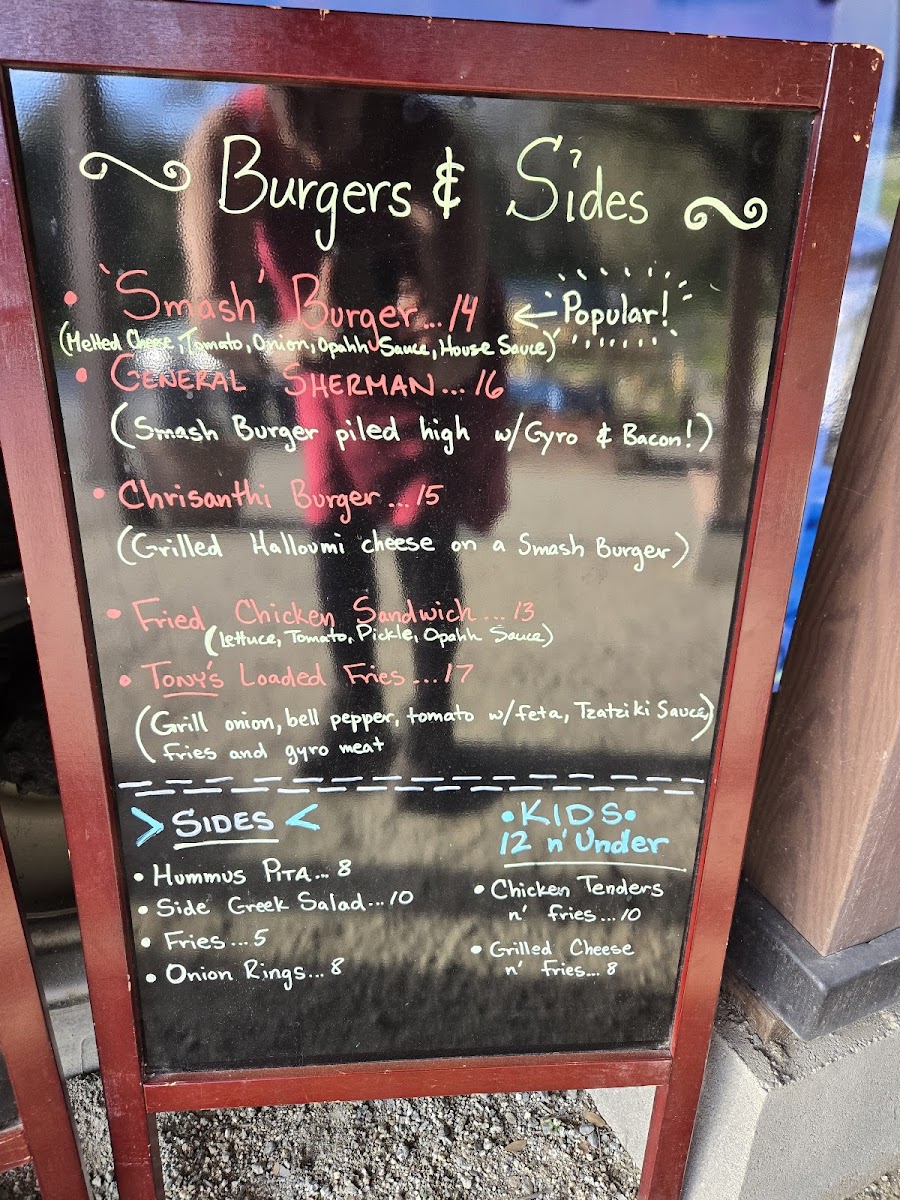 Burgers & Sides
• 'Smash' Burger... 14 ← Popular!
(Melted Cheese, Tomato, Onion, Opahh Sauce, House Sauce)
• GENERAL SHERMAN... 16
(Smash Burger piled high w/Gyro & Bacon!)
• Chrisanthi Burger... 15
(Grilled Halloumi cheese on a Smash Burger)
• Fried Chicken Sandwich... 13
(Lettuce, Tomato, Pickle, Opahh Sauce)
• TONY'S Loaded Fries... 17
(Grill onion, bell pepper, tomato w/feta, Tzatziki Sauce,
Fries and gyro meat
> SIDES <
• Hummus PITA... 8
• Side Greek Salad... 10
• Fries... 5
• Onion Rings... 8
• KIDS •
12 n' Under
• Chicken Tenders
n' fries... 10
• Grilled Cheese
n' fries... 8